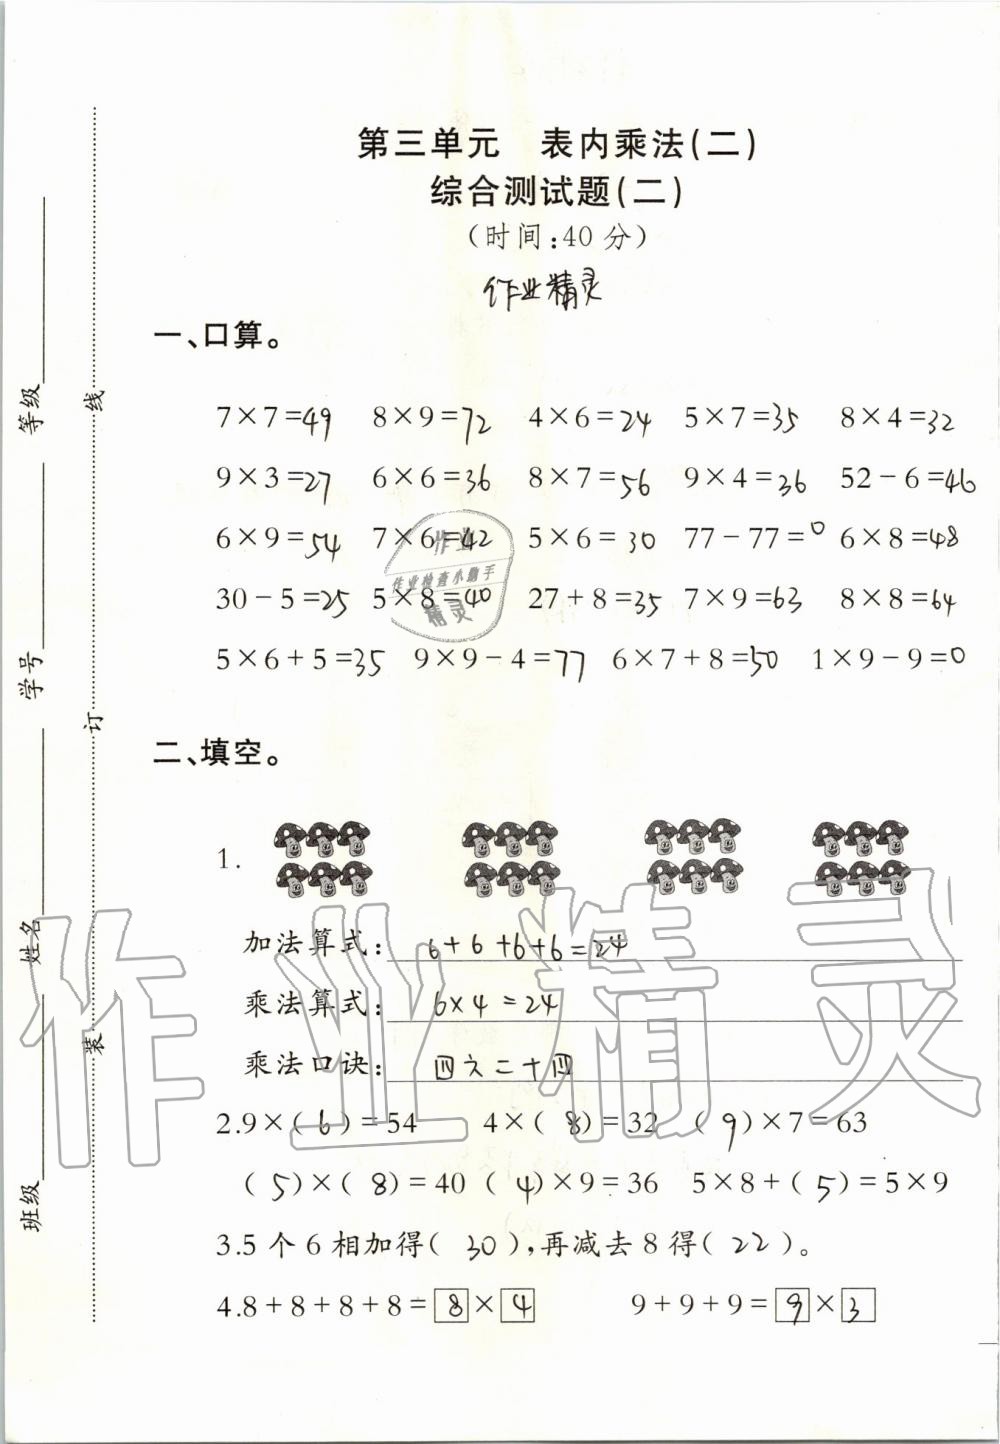 第三单元 表内乘法(二)
综合测试题(二)
(时间:40分)
作业精灵
一、口算。
7×7=49 8×9=72 4×6=24 5×7=35 8×4=32
9×3=27 6×6=36 8×7=56 9×4=36 52-6=46
6×9=54 7×6=42 5×6=30 77-77=0 6×8=48
30-5=25 5×8=40 27+8=35 7×9=63 8×8=64
5×6+5=35 9×9-4=77 6×7+8=50 1×9-9=0
作业
作业检查小助手
精灵
二、填空。
1.
加法算式: 6+6+6+6=24
乘法算式: 6×4=24
乘法口诀: 四六二十四
2.9×(6)=54 4×(8)=32 (9)×7=63
(5)×(8)=40 (4)×9=36 5×8+(5)=5×9
3.5个6相加得(30),再减去8得(22)。
4.8+8+8+8=8×4 9+9+9=9×3
班级 姓名 学号 等级
装 订 线
作业精灵